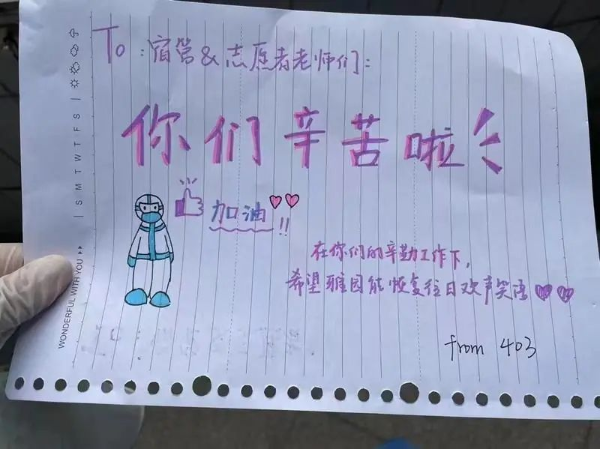 To:宿管&志愿者老师们:
你们辛苦啦
加油!!
在你们的辛勤工作下,
希望雅园能恢复往日欢声笑语
from 403
S M T W T F S
WONDERFUL WITH YOU